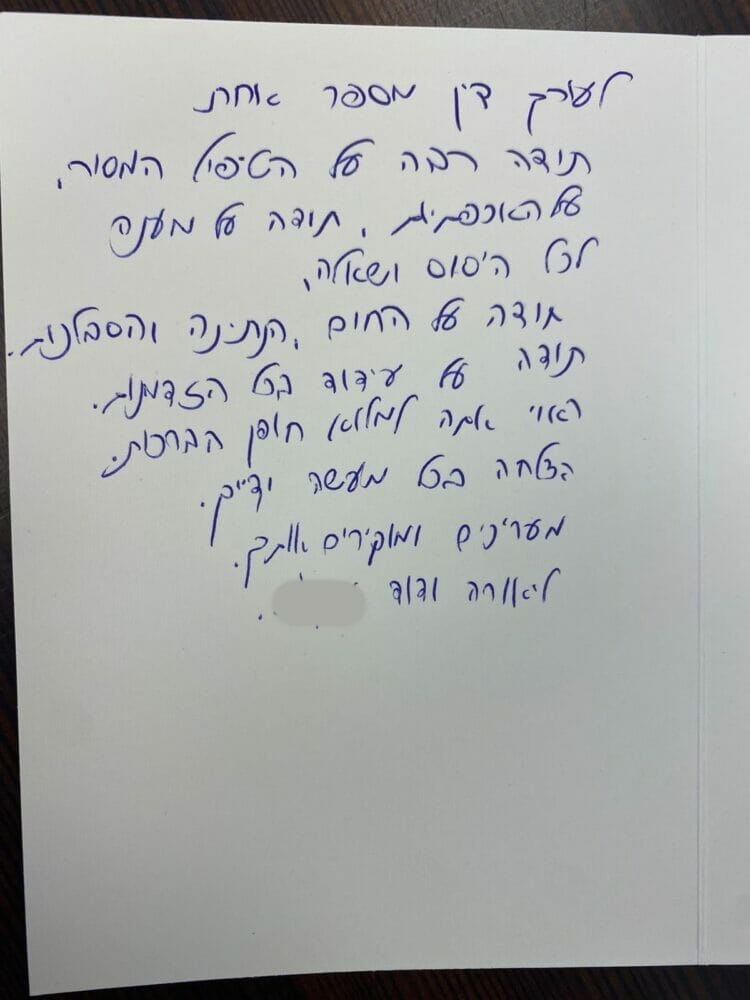 לעורך דין מספר אחת
תודה רבה על הטיפול המסור,
על האכפתיות, תודה על מענה
לכל היסוס ושאלה,
תודה על החום, הנתינה והסבלנות.
תודה על עידוד בכל הזדמנות.
ראוי אתה למלוא חופן הברכות.
הצלחה בכל מעשה ידייך.
מעריכים ומוקירים אותך.
ליאורה ודוד